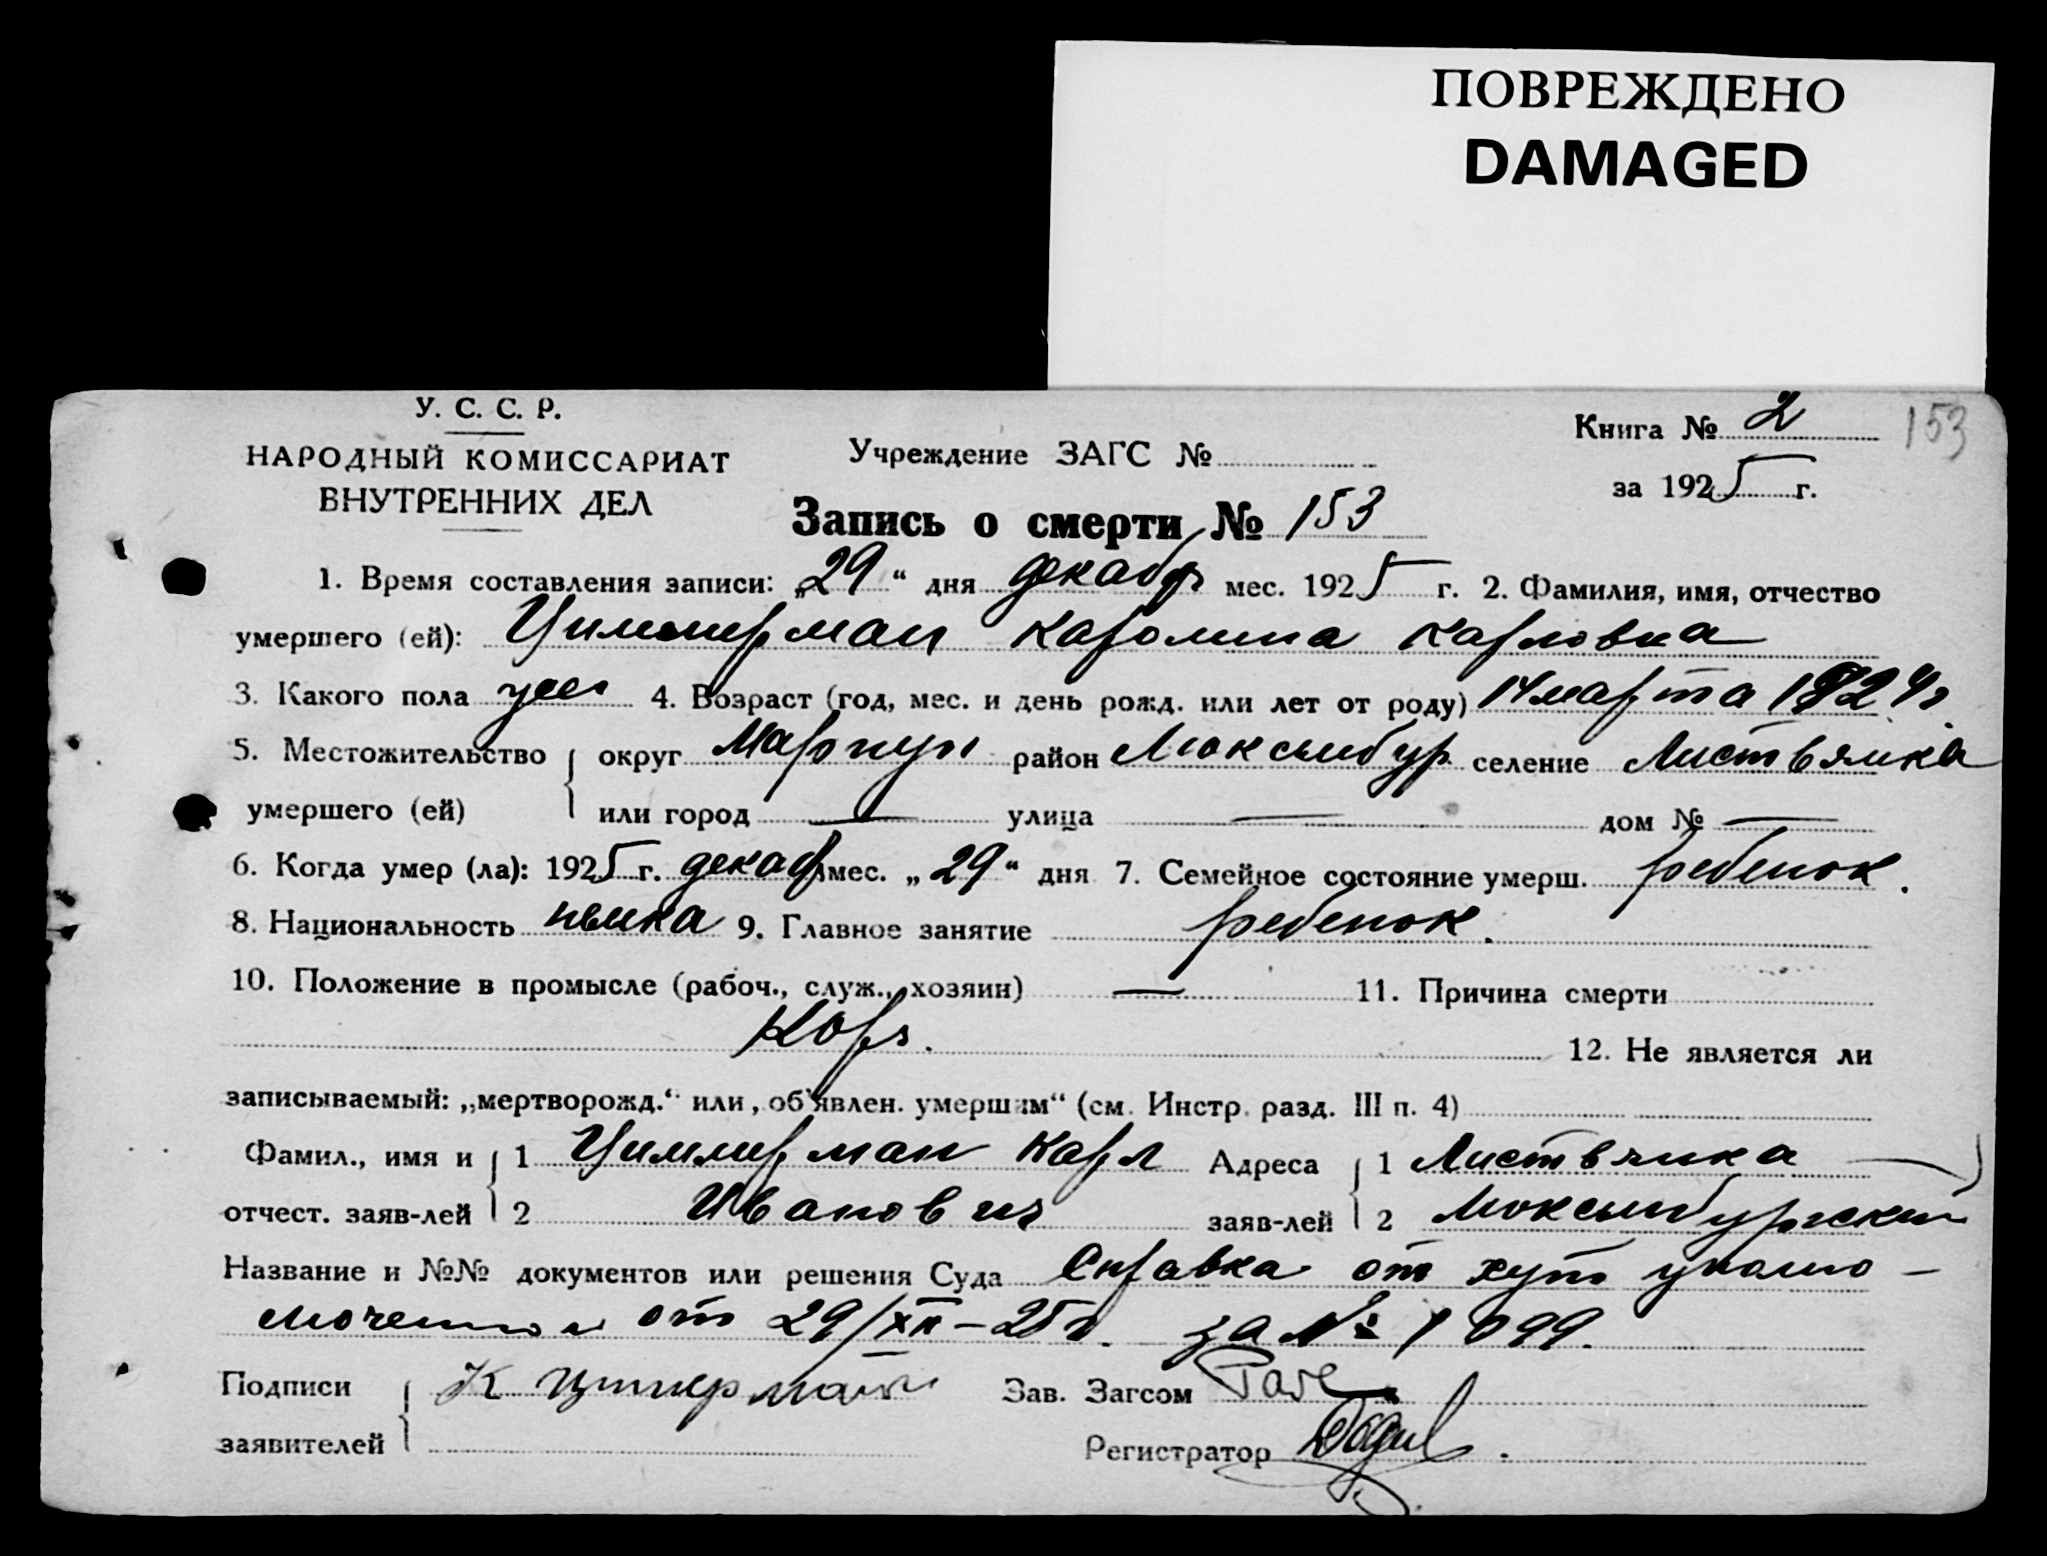 ПОВРЕЖДЕНО
DAMAGED
У. С. С. Р.
НАРОДНЫЙ КОМИССАРИАТ
ВНУТРЕННИХ ДЕЛ
Учреждение ЗАГС №
Книга № 2
153
за 1925 г.
Запись о смерти № 153
1. Время составления записи: „29“ дня декабр мес. 1925 г. 2. Фамилия, имя, отчество
умершего (ей): Циммерман Каролина Карловна
3. Какого пола жен 4. Возраст (год, мес. и день рожд. или лет от роду) 14 марта 1924 г.
5. Местожительство умершего (ей) округ Мариуп район Люксембур. селение Листвянка
или город — улица — дом № —
6. Когда умер (ла): 1925 г. декаб мес. „29“ дня 7. Семейное состояние умерш. ребенок.
8. Национальность немка 9. Главное занятие ребенок.
10. Положение в промысле (рабоч., служ., хозяин) — 11. Причина смерти
Корь. 12. Не является ли
записываемый: „мертворожд.“ или „об'явлен. умершим“ (см. Инстр. разд. III п. 4)
Фамил., имя и отчест. заяв-лей 1 Циммерман Карл Адреса заяв-лей 1 Листвянка
2 Иванович 2 Люксембургский
Название и №№ документов или решения Суда Справка от хут уполно-
моченного от 29/XII-25 г. за № 1099.
Подписи заявителей К Цимерман Зав. Загсом
Регистратор